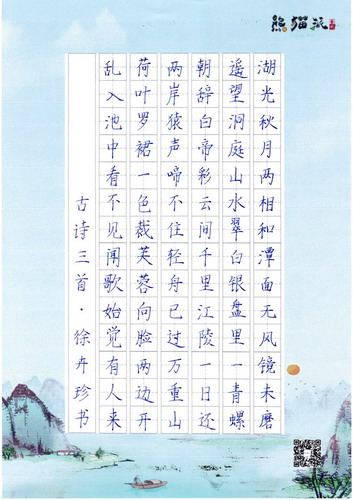 熊猫
湖光秋月两相和潭面无风镜未磨
遥望洞庭山水翠白银盘里一青螺
朝辞白帝彩云间千里江陵一日还
两岸猿声啼不住轻舟已过万重山
荷叶罗裙一色裁芙蓉向脸两边开
乱入池中看不见闻歌始觉有人来
古诗三首·徐卉珍书